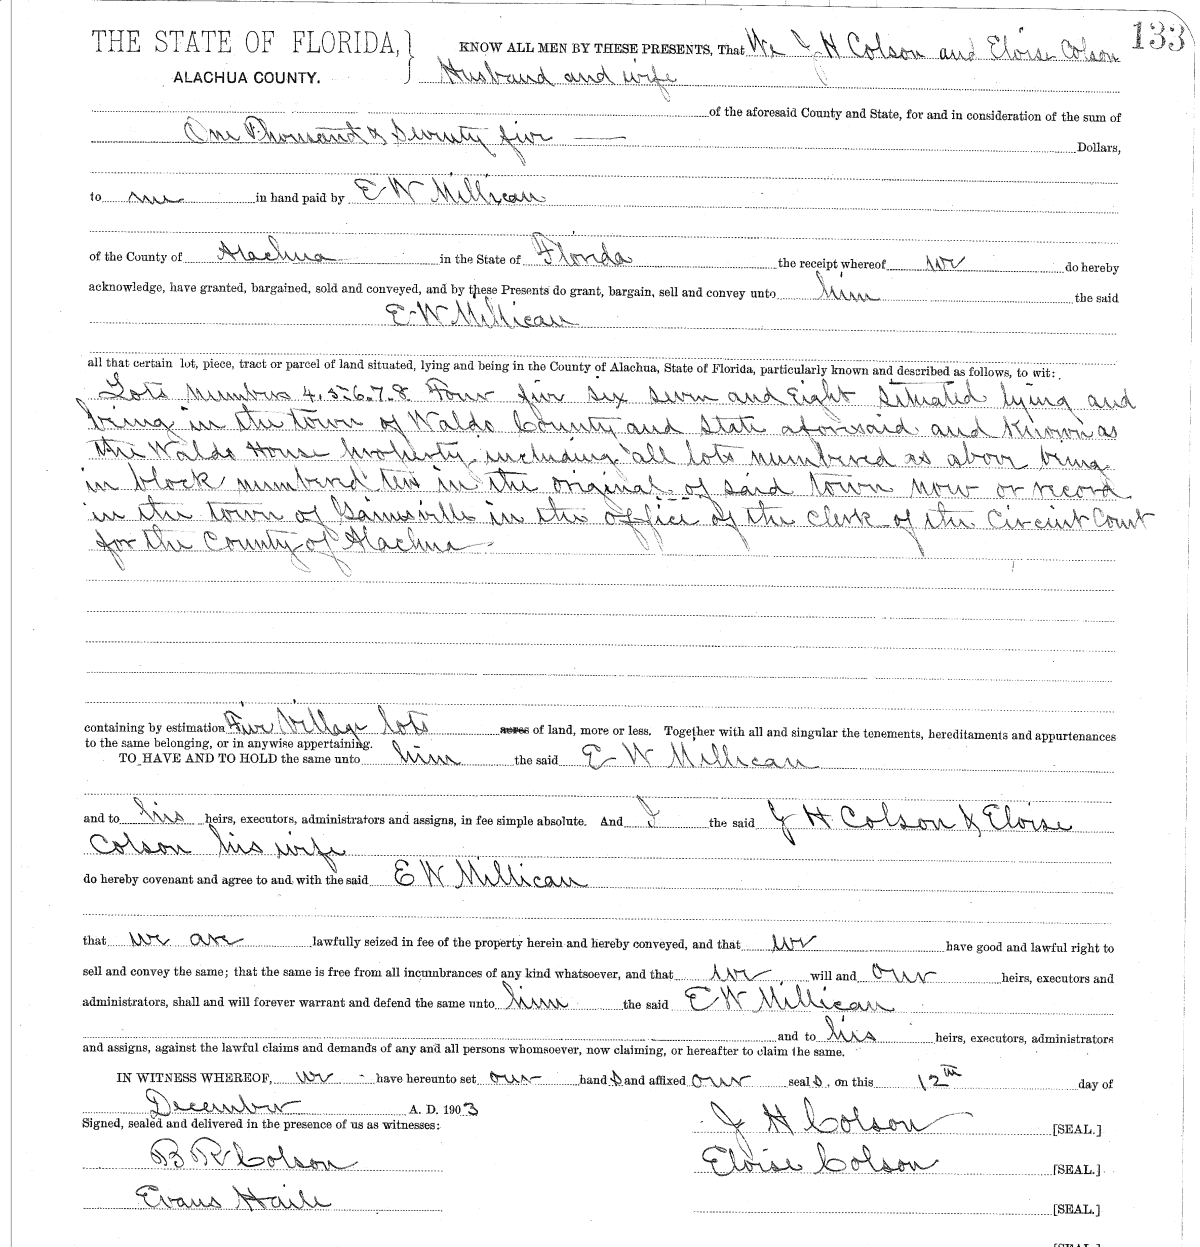 133
THE STATE OF FLORIDA, KNOW ALL MEN BY THESE PRESENTS, That We J H Colson and Eloise Colson
ALACHUA COUNTY. Husband and wife
of the aforesaid County and State, for and in consideration of the sum of
One Thousand & Seventy five — Dollars,
to me in hand paid by E W Millican
of the County of Alachua in the State of Florida the receipt whereof we do hereby
acknowledge, have granted, bargained, sold and conveyed, and by these Presents do grant, bargain, sell and convey unto him the said
E W Millican
all that certain lot, piece, tract or parcel of land situated, lying and being in the County of Alachua, State of Florida, particularly known and described as follows, to wit:
Lots Number 4.5.6.7.8. Four five six seven and Eight situated lying and
being in the town of Waldo County and State aforesaid and Known as
the Waldo House property including all lots numbered as above being
in block numbered ten in the original of said town now or record
in the town of Gainesville in the office of the Clerk of the Circuit Court
for the County of Alachua
containing by estimation Five Village lots acres of land, more or less. Together with all and singular the tenements, hereditaments and appurtenances
to the same belonging, or in anywise appertaining.
TO HAVE AND TO HOLD the same unto him the said E W Millican
and to his heirs, executors, administrators and assigns, in fee simple absolute. And I the said J H Colson & Eloise
Colson his wife
do hereby covenant and agree to and with the said E W Millican
that we are lawfully seized in fee of the property herein and hereby conveyed, and that we have good and lawful right to
sell and convey the same; that the same is free from all incumbrances of any kind whatsoever, and that we will and our heirs, executors and
administrators, shall and will forever warrant and defend the same unto him the said E W Millican
and to his heirs, executors, administrators
and assigns, against the lawful claims and demands of any and all persons whomsoever, now claiming, or hereafter to claim the same.
IN WITNESS WHEREOF, we have hereunto set our hand s and affixed our seal s, on this 12th day of
December A. D. 1903
Signed, sealed and delivered in the presence of us as witnesses: J H Colson [SEAL.]
B R Colson Eloise Colson [SEAL.]
Evans Haile [SEAL.]